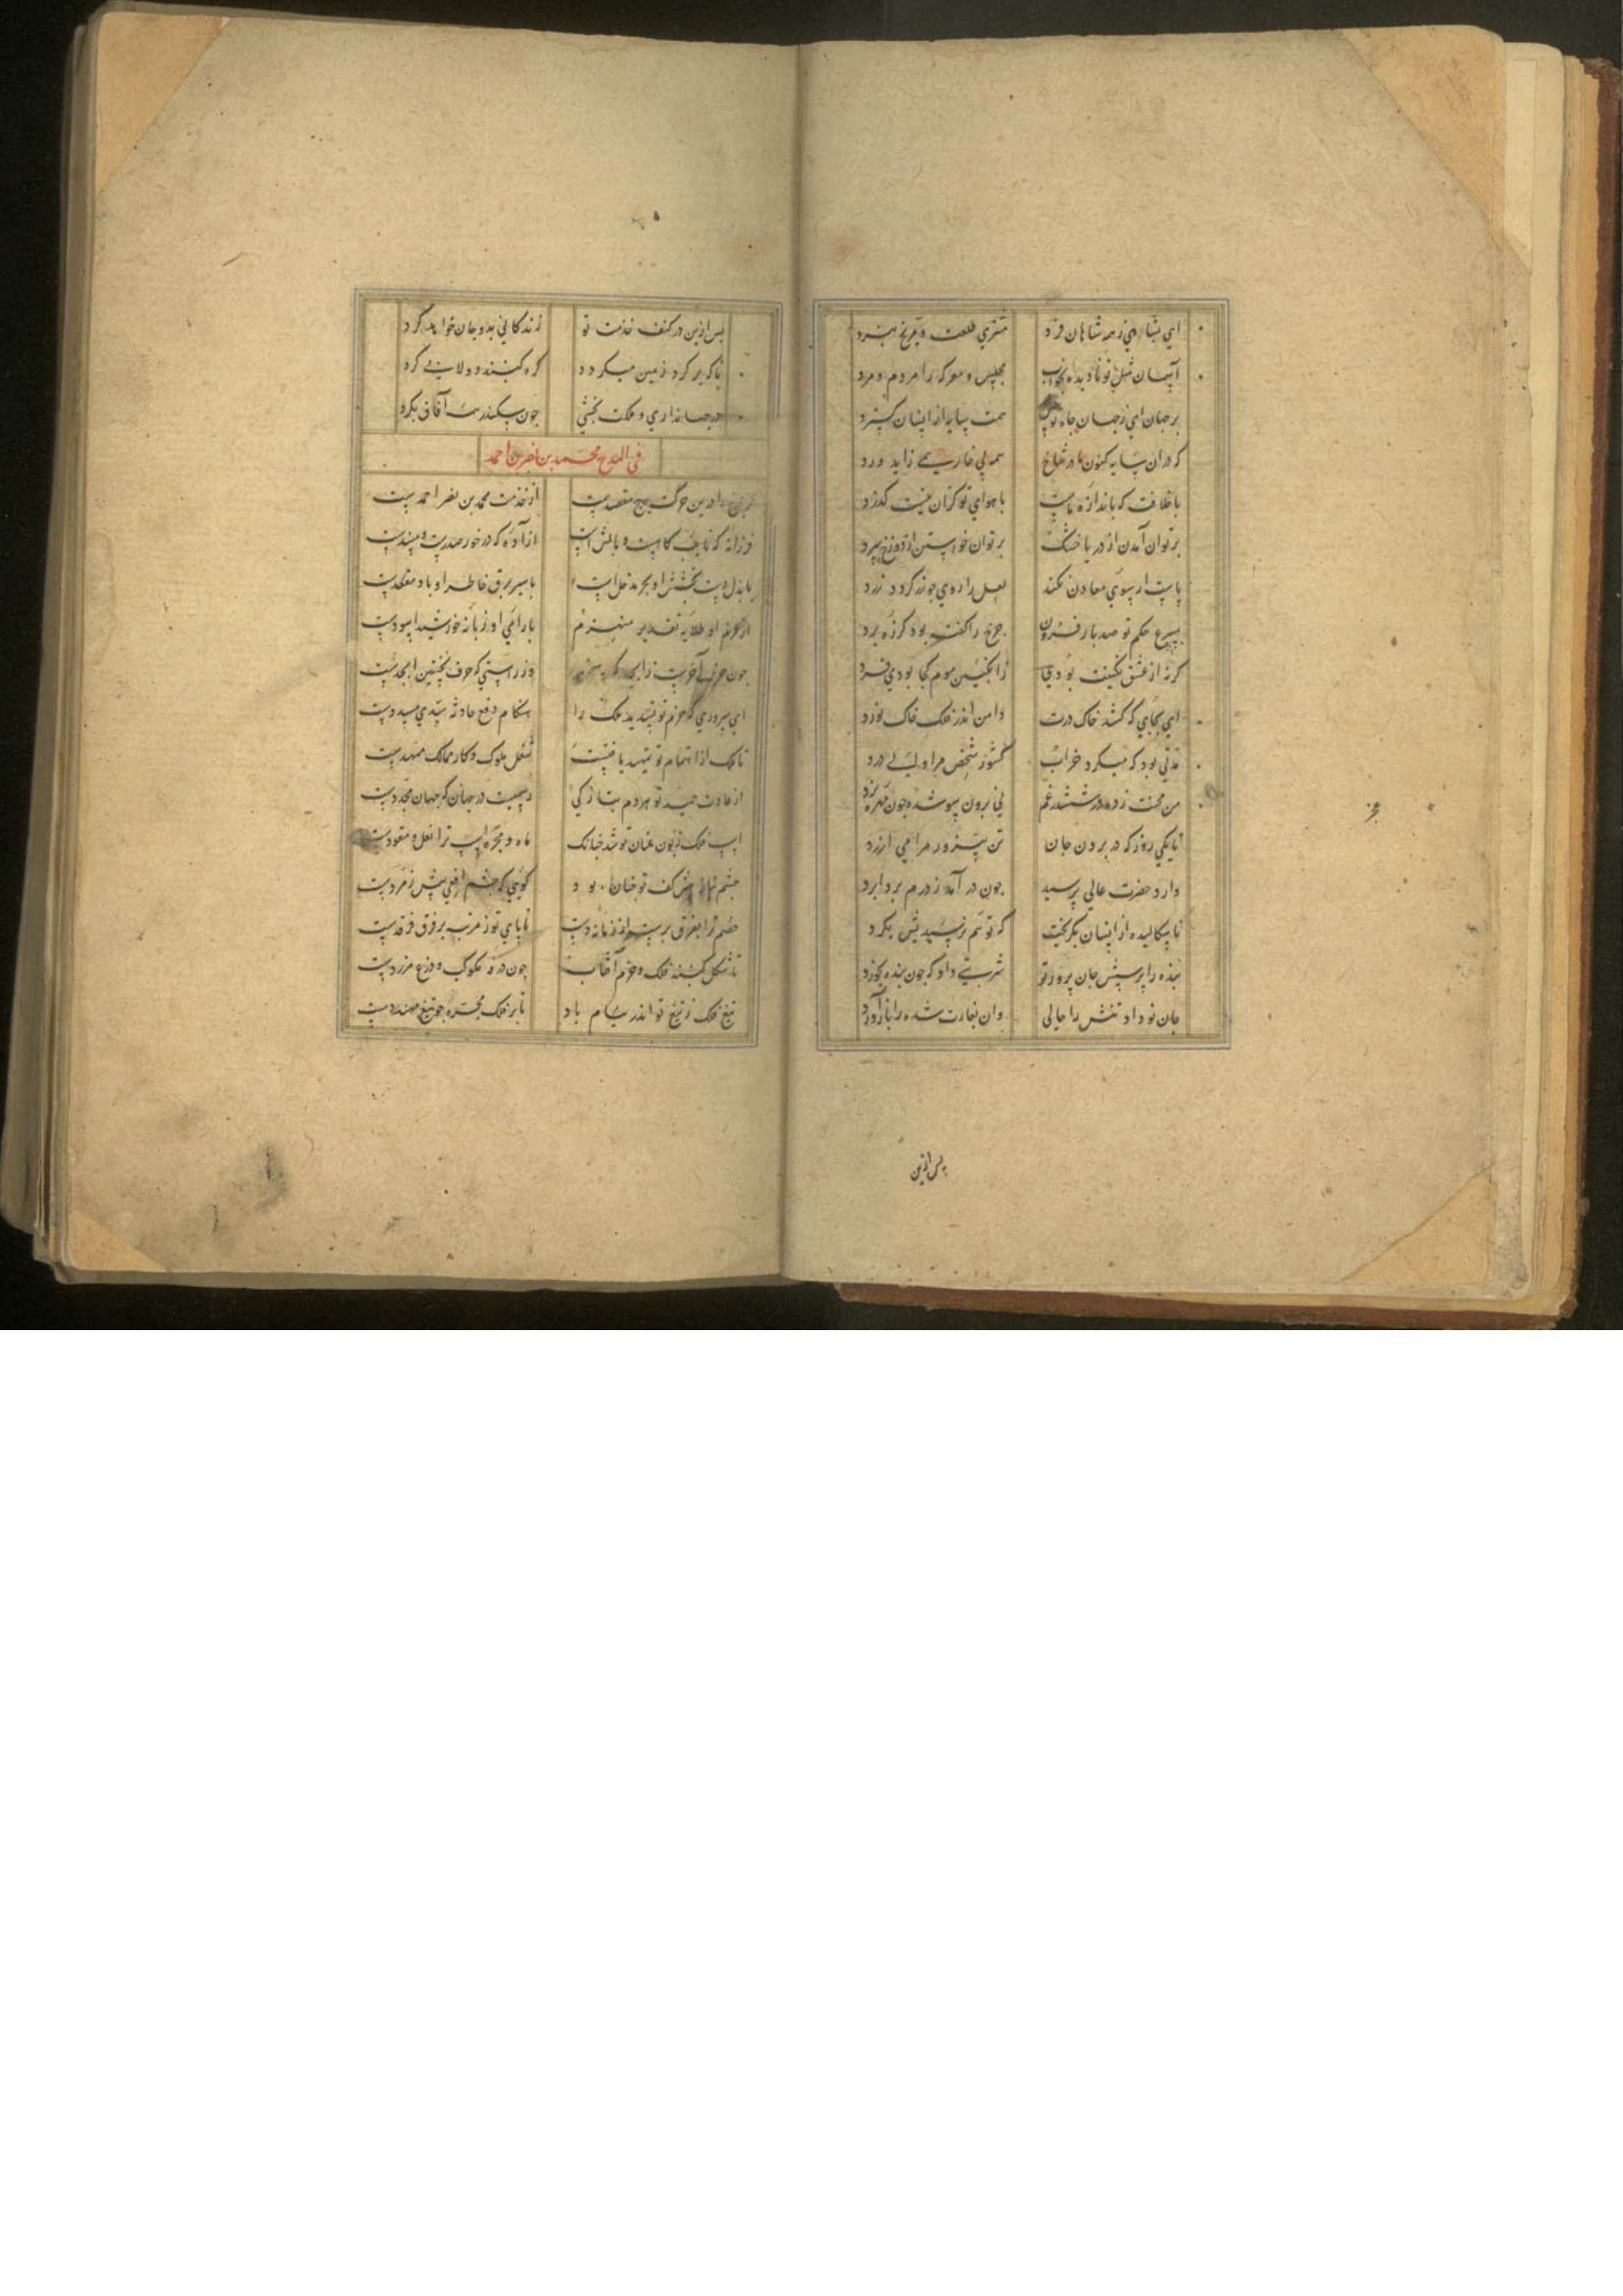 اي بشاهي ز همه شاهان فرد مشتري طلعت و مريخ نبرد
آسمان مثل تو ناديده بخواب مجلس و معركه را مردم و مرد
بر جهان اي ز جهان جاه تو بس همت سايه از ايشان گسترد
كه در ان سايه كنون مادر شاخ همه بي خار همي زايد ورد
با خلافت كه باندازه ماست با هواي تو كران نيست گذرد
بر توان آمدن از دريا خشك بر توان خواستن از دوزخ سرد
پاست ار سوي معادن نكند لعل را روي چو زر گردد زرد
سرع حكم تو صد بار فزون چرخ را گفت بود كز ره برد
گرنه از عشق نگينت بودي ز انگبين موم كجا بودي فرد
اي بجايي كه كشد خاك درت دامن اندر فلك خاك نورد
مدتي بود كه ميكرد خراب كشور شخص مرا والي درد
من محنت زده در ششدر غم ني برون سو شده چون مهره نرد
تا يكي روز كه در بردن جان تن سترور مرا مي آزرد
وارد حضرت عالي پرسيد چون در آمد ز درم بردابرد
نا سكاليده از ايشان بگريخت كه تو هم نرسيديش بگرد
بنده را پرسش جان پرور تو شربتي داد كه چون بنده بخورد
جان نو داد تنش را حالي وان بغارت شده را باز آورد
پس ازين
عجز
پس ازين در كنف خدمت تو زندگاني بدو جان خواهد كرد
تا كه بر گرد زمين ميگردد گره گنبد دولابي گرد
در جهانداري و ملكت بخشي چون سكندر همه آفاق بگرد
في المدح محمد بن نصر بن احمد
گر چرخ را درين حركت هيچ مقصدست از خدمت محمد بن نصر احمدست
فرزانه كه بابت گاهست و بالش است آزاده كه در خور صدرست و مسندست
با بذل دست بخشش او بحر مدخل است با سير برق خاطر او باد مقعدست
از عزم او طلايه تقدير منهزم با راي او زبانه خورشيد اسودست
چون حرف آخرست ز ابجد كه سخن وز راستي كه حرف نخستين ابجدست
اي سروري كه حزم تو تسديد ملك را هنگام دفع حادثه سدي مسددست
تا ملك از اهتمام تو تمهيد يافتست شغل ملوك و كار ممالك ممهدست
از عادت حميد تو هر دم بتازگي رسميست در جهان كه جهان مجددست
اسب فلك زبون عنان تو شد چنانك ماه و مجره اسب ترا نعل و مقودست
چشم نياز پيش كف تو چنان بود گويي كه چشم افعي پيش زمردست
خصم ترا بفرق برست از زمانه دست تا پاي تو ز مرتبه بر فرق فرقدست
تا شكل گنبد فلك و جرم آفتاب چون درقه مكوكب و درع مزردست
تيغ فلك ز تيغ تو اندر نيام باد تا بر فلك مجره چو تيغ مهندست